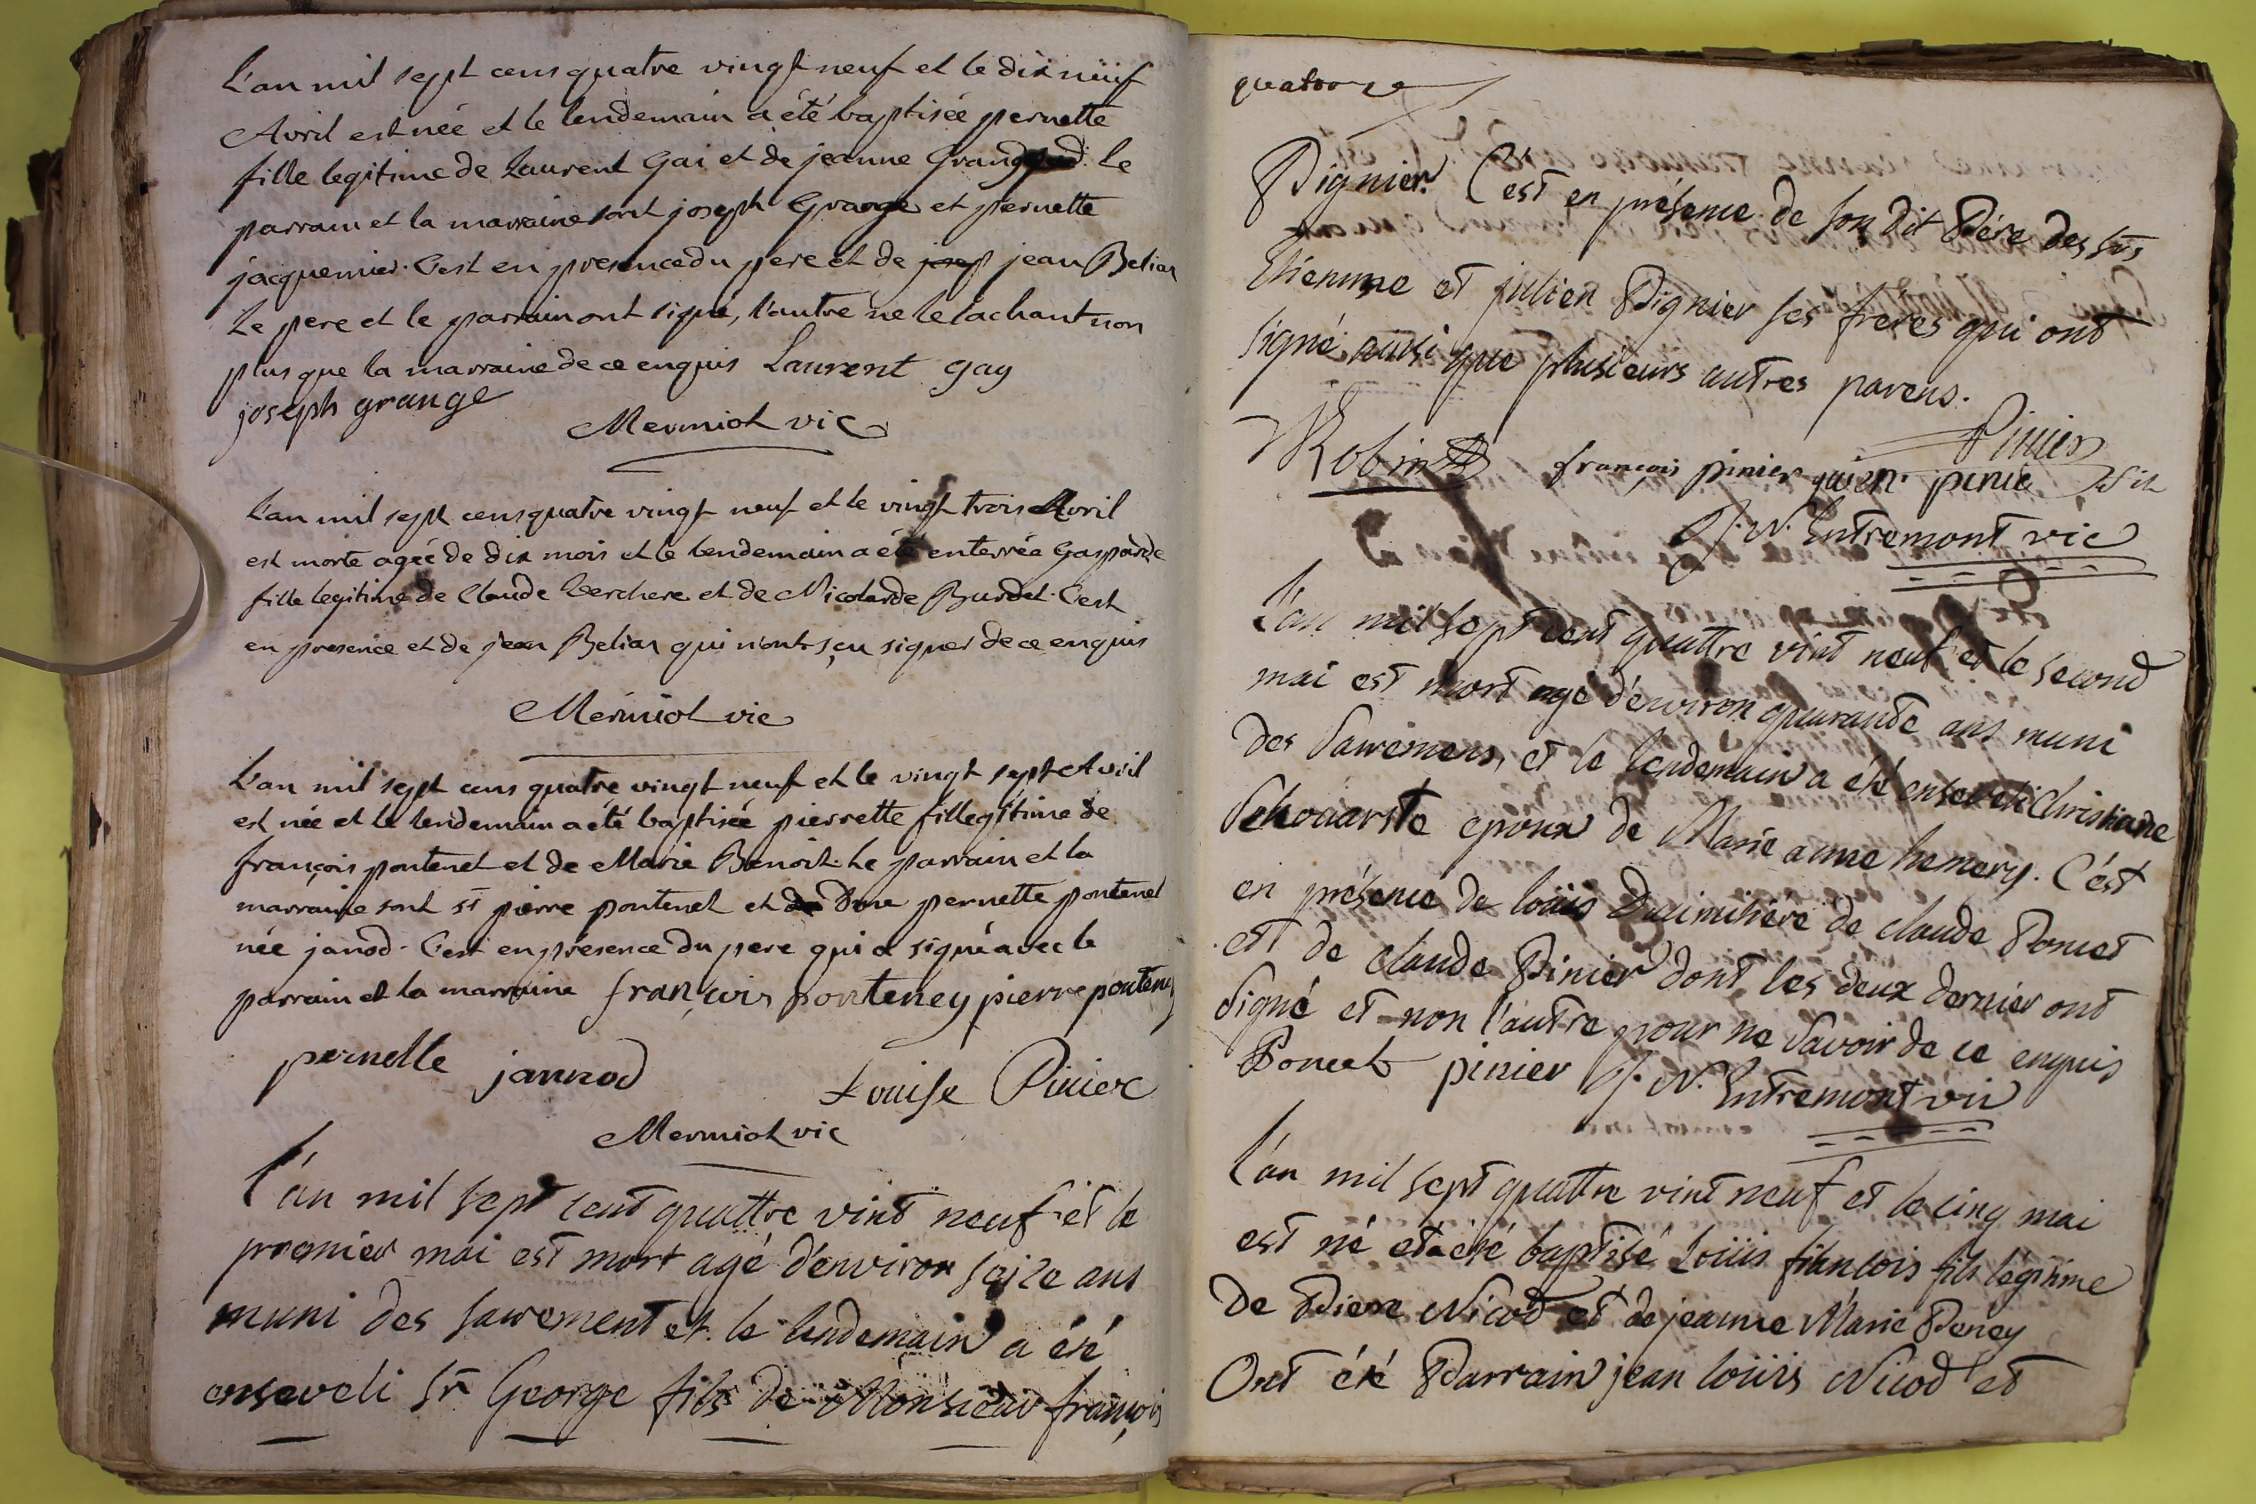 L'an mil sept cens quatre vingt neuf et le dix neuf
Avril est née et le lendemain a été baptisée pernette
fille legitime de Laurent Gai et de jeanne le
parrain et la marraine sont joseph Grange et pernette
jacquemier. C'est en presence du pere et de josep jean Belian
Le pere et le parrain ont signé, l'autre ne le sachant non
plus que la marraine de ce enquis Laurent gay
joseph grange
Mermiot vic
L'an mil sept cens quatre vingt neuf et le vingt trois Avril
est morte agée de dix mois et le lendemain a été enterrée Gasparde
fille legitime de Claude Verchere et de Nicolarde Burdet. C'est
en presence et de jean Belian qui n'ont sçu signer de ce enquis
Mermiot vic
L'an mil sept cens quatre vingt neuf et le vingt sept Avril
est née et le lendemain a été baptisée pierrette fille gitime de
françois pontenet et de Marie Benoit. Le parrain et la
marraine sont sr pierre pontenet et de Dme pernette pontenet
née janod. C'est en présence du pere qui a signé avec le
parrain et la marraine françois ponteney pierre ponteney
pernette jannod Louise Pinier
Mermiot vic
L'an mil sept cent quattre vint neuf et le
premier mai est mort agé d'environ seize ans
muni des sacrement et le lendemain a été
enseveli sr George fils de Monsieur françois
quatorze
Pignier. C'est en présence de son dit Pére des srs
Etienne et julien Pignier ses freres qui ont
signé ainsi que plusieurs autres parens.
Robin françois pinier juien pinie Pinier
J. N. Entremont vic
L'an mil sept cent quattre vint neuf et le second
mai est mort agé d'environ quarante ans muni
des Sacremens, et le lendemain a été enseveli Christiane
Schouarste epoux de Marie anne hemery. C'est
en présence de loüis Dumilière de claude Poncet
et de claude Pinier dont les deux dernier ont
signé et non l'autre pour ne Savoir de ce enquis
Poncet pinier J. N. Entremont vic
L'an mil sept quattre vint neuf et le cinq mai
est né et a été baptisé Loüis francois fils légitime
de Pierre Nicod et de jeanne Marie Peney
Ont été Parrain jean loüis Nicod et